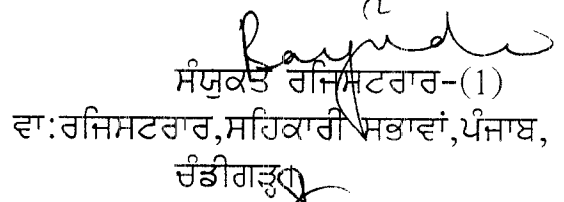 ਸੰਯੁਕਤ ਰਜਿਸਟਰਾਰ-(1)
ਵਾ:ਰਜਿਸਟਰਾਰ,ਸਹਿਕਾਰੀ ਸਭਾਵਾਂ,ਪੰਜਾਬ,
ਚੰਡੀਗੜ੍ਹ।